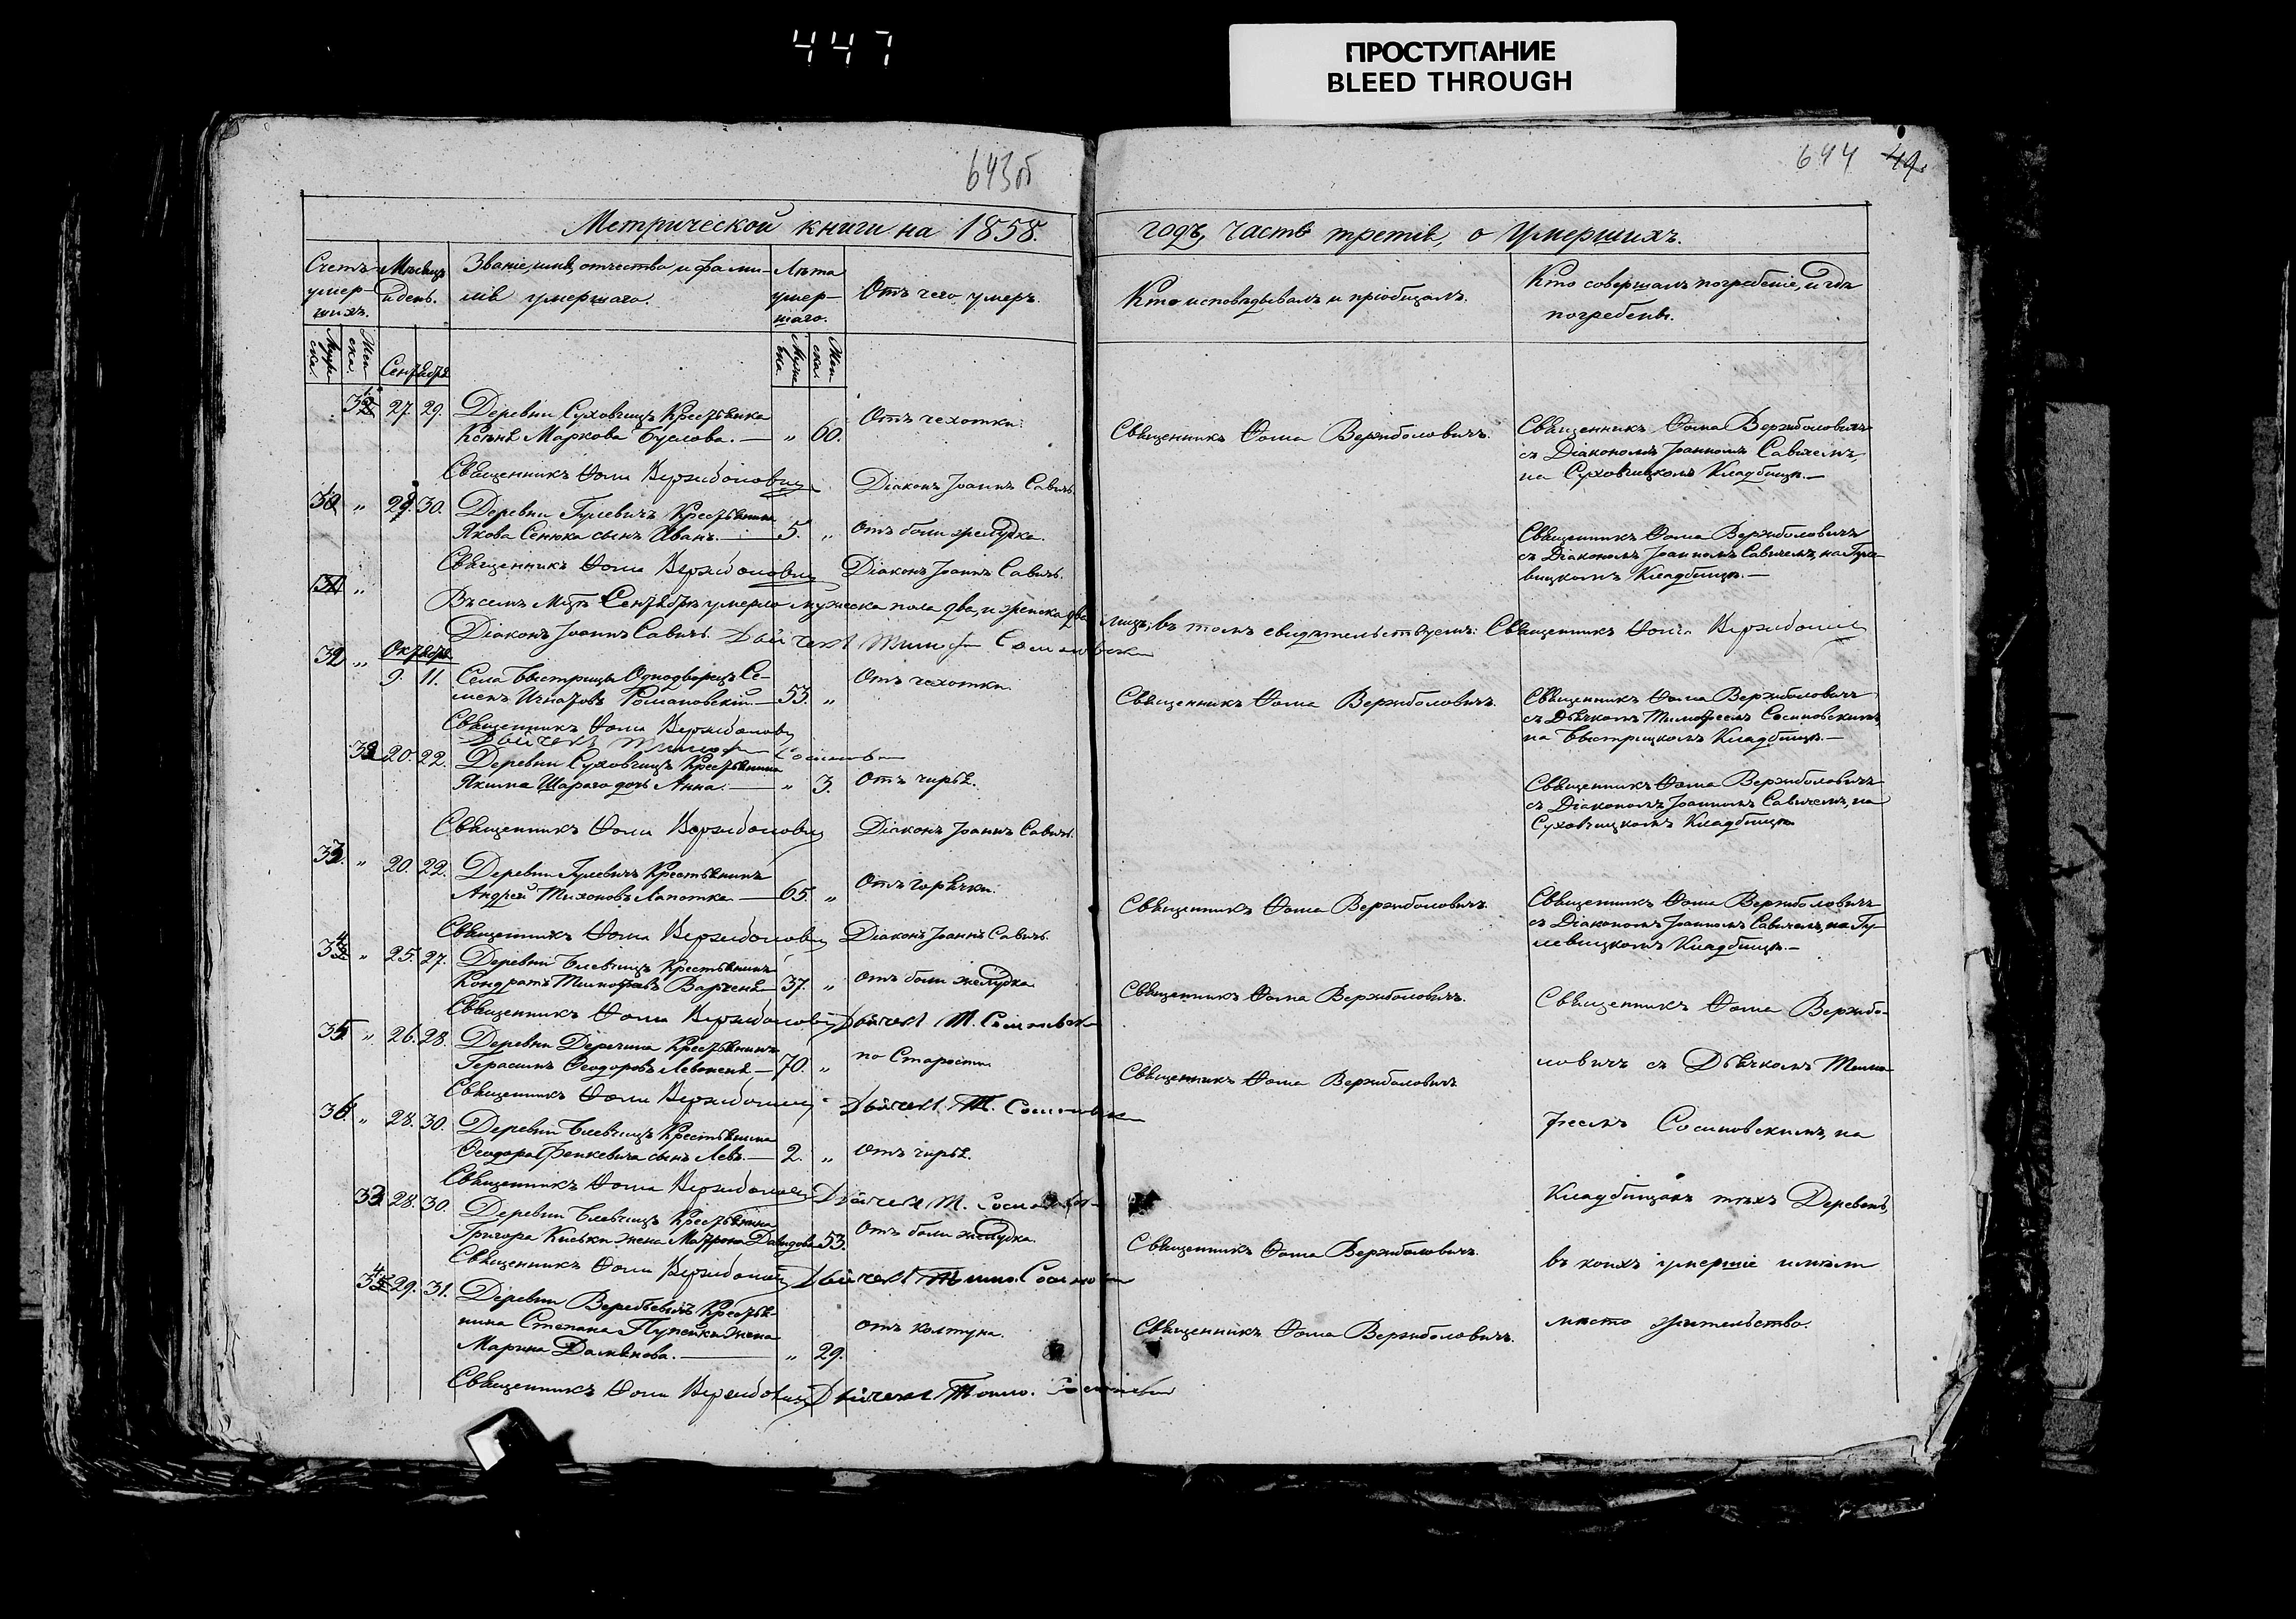 447
ПРОСТУПАНИЕ
BLEED THROUGH
643об
644 49.
Метрической книги на 1858.
годъ, часть третія, о умершихъ.
Счетъ умершихъ.
Мѣсяцъ и день.
Званіе, имя, отчество и фамилія умершаго.
Лѣта умершаго.
Отъ чего умеръ.
Кто исповѣдывалъ и пріобщалъ.
Кто совершалъ погребеніе, и гдѣ погребены.
Муже-ска.
Жен-ска.
Сентября
Муже-ска.
Жен-ска.
27. 29. Деревни Суховчицъ Крестьянка
Маркова Буслова. — „ 60.
Отъ чехотки.
Священникъ Ѳома Вержболовичъ.
Священникъ Ѳома Вержболовичъ
съ Діакономъ Іоанномъ Савичемъ,
на Суховчицкомъ Кладбищѣ.—
Священникъ Ѳома Вержболовичъ
Діаконъ Іоаннъ Савичъ.
30 „ 29. 30. Деревни Гулевичъ Крестьянина
Якова Сенюка сынъ Иванъ. — 5. „
Отъ боли желудка.
Священникъ Ѳома Вержболовичъ
съ Діакономъ Іоанномъ Савичемъ, на Гуле-
вицкомъ Кладбищѣ.—
Священникъ Ѳома Вержболовичъ
Діаконъ Іоаннъ Савичъ.
31 „
Въ семъ Мцѣ Сентябрѣ умерло мужеска пола два, и женска два лицъ; въ томъ свидѣтельствуемъ: Священникъ Ѳома Вержболовичъ
Діаконъ Іоаннъ Савичъ. Дьячекъ Тимоѳей Сосиновскій
32 „ Октября
9. 11. Села Быстрицы Однодворецъ Се-
менъ Игнатовъ Романовскій.— 53. „
Отъ чехотки.
Священникъ Ѳома Вержболовичъ.
Священникъ Ѳома Вержболовичъ
съ Дьячкомъ Тимоѳеемъ Сосиновскимъ,
на Быстрицкомъ Кладбищѣ.—
Священникъ Ѳома Вержболовичъ
Дьячекъ Тимоѳей Сосиновскій
32 20. 22. Деревни Суховчицъ Крестьянина
Якима Шараго дочь Анна. — „ 3.
Отъ чирья.
Священникъ Ѳома Вержболовичъ
съ Діакономъ Іоанномъ Савичемъ, на
Суховчицкомъ Кладбищѣ
Священникъ Ѳома Вержболовичъ
Діаконъ Іоаннъ Савичъ.
33. „ 20. 22. Деревни Гулевичъ Крестьянинъ
Андрей Тихоновъ Лапотка. — 65. „
Отъ горячки.
Священникъ Ѳома Вержболовичъ
Священникъ Ѳома Вержболовичъ
съ Діакономъ Іоанномъ Савичемъ, на Гу-
левицкомъ Кладбищѣ.—
Священникъ Ѳома Вержболовичъ
Діаконъ Іоаннъ Савичъ.
34 „ 25. 27. Деревни Крестьянинъ
Кондратъ Тимоѳеевъ 37. „
отъ боли желудка
Священникъ Ѳома Вержболовичъ.
Священникъ Ѳома Вержбо-
Священникъ Ѳома Вержболовичъ Дьячекъ Т. Сосиновскій
35 „ 26. 28. Деревни Деречина Крестьянинъ
Герасимъ Ѳеодоровъ — 70. „
по Старости
Священникъ Ѳома Вержболовичъ
ловичъ съ Дьячкомъ Тимо-
Священникъ Ѳома Вержболовичъ Дьячекъ Т. Сосиновскій
36. „ 28. 30. Деревни Крестьянина
Ѳеодора Фенкевича сынъ Левъ.— 2. „
Отъ чирья.
ѳеемъ Сосиновскимъ, на
Священникъ Ѳома Вержболовичъ Дьячекъ Т. Сосиновскій
33 28. 30. Деревни Крестьянина
Григора жена Матрона Давидова 53.
Отъ боли желудка.
Кладбищахъ тѣхъ Деревень,
Священникъ Ѳома Вержболовичъ.
Священникъ Ѳома Вержболовичъ Дьячекъ Тимо. Сосиновскій
въ коихъ умершіе имѣли
34 29. 31. Деревни Крестья-
нина Степана жена
Марина — „ 29.
отъ колтуна.
Священникъ Ѳома Вержболовичъ.
мѣсто жительство.
Священникъ Ѳома Вержболовичъ Дьячекъ Тимо. Сосиновскій